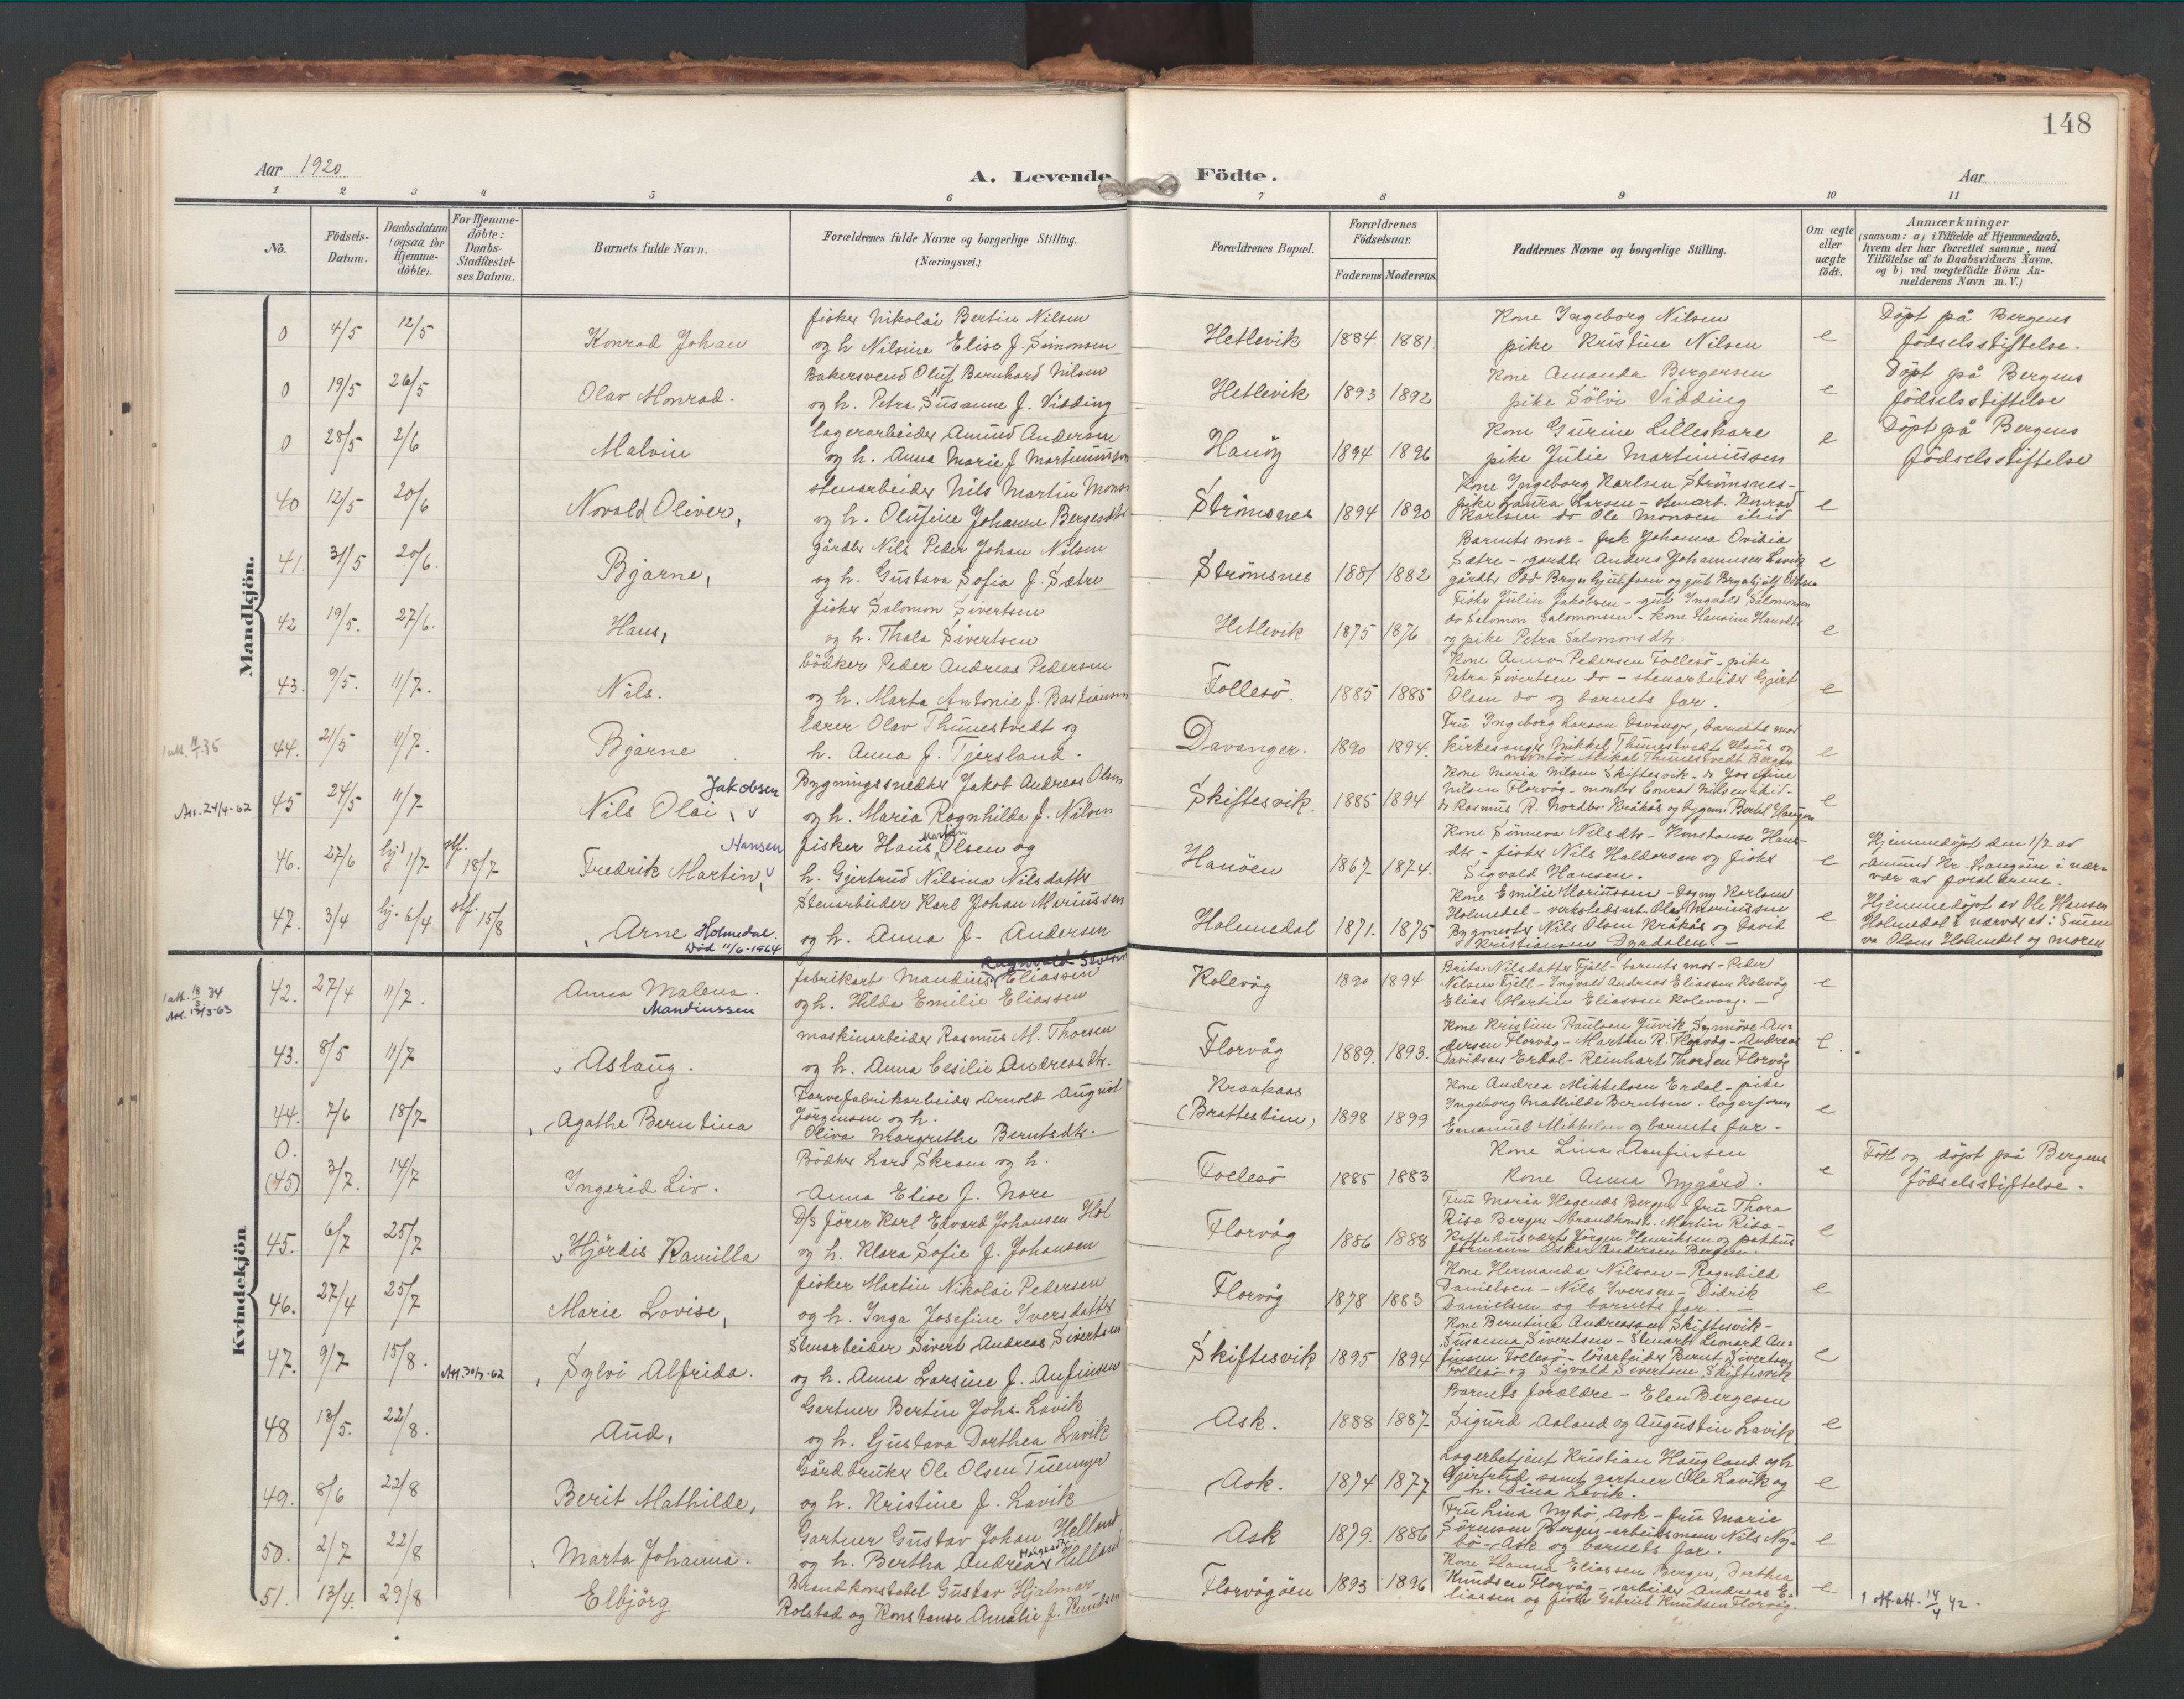 148
Aar 1920
A. Levende Födte.
Aar
1 2 3 4 5 6 7 8 9 10 11
No.
Födsels-Datum.
Daabsdatum (ogsaa for Hjemme-döbte).
For Hjemme-döbte: Daabs-Stadfæstel-ses Datum.
Barnets fulde Navn.
Forældrenes fulde Navne og borgerlige Stilling. (Næringsvei.)
Forældrenes Bopæl.
Forældrenes Födselsaar.
Faderens. Moderens.
Faddernes Navne og borgerlige Stilling.
Om ægte eller uægte födt.
Anmærkninger (saasom: a) i Tilfælde af Hjemmedaab, hvem der har forrettet samme, med Tilföielse af to Daabsvidners Navne. og b) ved uægtefödte Börn An-melderens Navn m. V.)
Mandkjön.
0 4/5 12/5 Konrad Johan
fisker Nikolai Bertin Nilsen
og h Nilsine Elise f. Simonsen
Hetlevik 1884 1881.
Kone Ingeborg Nilsen
pike Kristine Nilsen
e
Döpt på Bergens
födselsstiftelse.
0 19/5 26/5 Olav Monrad.
Bakersvend Oluf Bernhard Nilsen
og h. Petra Susanne f. Vidding
Hetlevik 1893 1892
Kone Amanda Bergersen
pike Sölvi Vidding
e
Döpt på Bergens
födselsstiftelse
0 28/5 2/6 Malvin
lagerarbeider Amund Andersen
og h. Anna Marie f. Martinussen
Hanöy 1894 1896
Kone Gurine Lilleskare
pike Julie Martinussen
e
Döpt på Bergens
födselsstiftelse
40 12/5 20/6 Norald Oliver,
stenarbeider Nils Martin Mons
og h. Olufine Johanne Bergesdtr
Strömsnes 1894 1890
Kone Ingeborg Karlsen Strömsnes -
pike Laura Larsen - stenarb. Konrad
Karlsen do Ole Monsen ibid
e
41. 31/5 20/6. Bjarne,
gårdbr Nils Peder Johan Nilsen
og h. Gustava Sofia f. Sætre
Strömsnes 1881 1882
Barnets mor - frk Johanna Ovidia
Sætre - gardbr Anders Johannesen Lavik
gårdbr Odd Brynhjulfsen og gut Brynhjulf Oddsen
e
42 19/5. 27/6. Hans,
fisker Salomon Sivertsen
og h. Thala Sivertsen
Hetlevik 1875 1876
Fisker Julin Jakobsen - gut Ingvald Salomonsen
do Salomon Salomonsen - kone Hansine Hansdtr
og pike Petra Salomonsdtr.
e
43. 9/5. 11/7. Nils.
bödker Peder Andreas Pedersen
og h. Marta Antonie f. Bastiansen
Follesö. 1885 1885
Kone Anna Pedersen Follesö - pike
Petra Sivertsen do - stenarbeider Gjert
Olsen do og barnets far.
e
44. 21/5 11/7. Bjarne
lærer Olav Thunestvedt og
h. Anna f. Tjersland.
Davanger. 1890 1894.
Fru Ingeborg Larsen Davanger, barnets mor
Kirkesanger Mikkel Thunestvedt Haus og
montör Mikal Thunestvedt Bergen
e
Att. 24/4-62
45 24/5 11/7 Nils Olai, Jakobsen
Bygningssnedker Jakob Andreas Olsen
og h. Maria Ragnhilda f. Nilsen
Skiftesvik. 1885 1894
Kone Maria Nilsen Skiftesvik - do Josefine
Nilsen Florvåg - montör Conrad Nilsen ibid -
do Rasmus R. Nordbö Kråkås og bygmr. Bertel Haugen
e
46. 27/6 hjd 1/7 stf. 18/7 Fredrik Martin, Hansen
fisker Hans Martin Olsen og
h. Gjertrud Nilsina Nilsdatter
Hanöen 1867 1874.
Kone Sunneva Nilsdtr - Konstanse Hans-
dtr - fisker Nils Haldorsen og fisker
Sigvald Hansen.
e
Hjemmedöpt den 1/7 av
Amund Kr. Langöen i nær-
vær av foreldrene.
47. 3/4 hj. 6/4 stf. 15/8 Arne Holmedal.
Död 11/6-1964
Stenarbeider Karl Johan Mariussen
og h. Anna f. Andersen
Holmedal 1871. 1875
Kone Emilie Mariussen - Dagny Karlsen
Holmedal - verkstedsarb. Olai Mariussen
Bygmester Nils Olsen Kråkås og David
Kristiansen Dyrdalen. -
e
Hjemmedöpt av Ole Hansen
Holmedal i nærvær av: Sunne
va Olsen Holmedal og moren
Kvindekjön
1 att. 18/5 34
Att. 13/3-63
42. 27/4 11/7. Anna Malena.
Mandiussen
fabrikarb Mandius Ragnvald Severin Eliassen
og h. Hilda Emilie Eliassen
Kolevåg 1890 1894
Brita Nilsdatter Fjell - barnets mor - Peder
Nilsen Fjell - Ingvald Andreas Eliassen Kolevåg
Elias Martin Eliassen Kolevaag. -
e
43. 8/5 11/7 Aslaug.
maskinarbeider Rasmus M. Thorsen
og h. Anna Cesilie Andreasdtr.
Florvåg 1889. 1893.
Kone Kristine Paulsen Juvik Synnöve An-
dersen Florvåg - Martin R. Florvåg - Andreas
Davidsen Erdal - Reinhart Thorsen Florvåg
e
44. 7/6 18/7 Agathe Berntina
Farvefabrikarbeider Arnold August
Jörgensen og h.
Oliva Margrethe Berntsdtr.
Kraakaas
(Brattestien) 1898 1899
Kone Andrea Mikkelsen Erdal - pike
Ingeborg Mathilde Berntsen - lagerform
Emanuel Mikkelsen og barnets far -
e
0.
(45) 3/7. 14/7 Ingerid Liv.
Bödker Lars Skram og h.
Anna Elise f. Nore
Follesö 1885 1883
Kone Lina Arnfinsen
Kone Anna Nygård.
e
Född og döpt på Bergens
födselsstiftelse.
45. 6/7 25/7 Hjördis Kamilla
D/s förer Karl Edvard Johansen Hol
og h. Klara Sofie f. Johansen
Florvåg 1886 1888
Fru Maria Hagenæs Bergen - fru Thora
Risa Bergen - brandkonst. Martin Risa -
Kaffehusvært Jörgen Henriksen og pakhus
formann Oskar Andersen Bergen.
e
46. 27/4 25/7 Marie Lovise,
fisker Martin Nikolai Pedersen
og h. Inga Josefine Iversdatter
Florvåg 1878 1883
Kone Hermanda Nilsen - Ragnhild
Danielsen - Nils Iversen - Didrik
Danielsen og barnets far. -
e
47. 9/7 15/8. Sylvi Alfrida.
Stenarbeider Sivert Andreas Sivertsen
og h. Anna Larsine f. Anfinsen
Skiftesvik 1895 1894
Kone Berntina Andreassen Skiftesvik -
Susanna Sivertsen - Stenarb Leonard An-
finsen Follesö - lösarbeider Bernt Sivertsen
Follesö og Sigvald Sivertsen Skiftesvik
e
48 13/5. 22/8. Aud,
Gartner Bertin Johs. Lavik
og h. Gustava Dorthea Lavik
Ask. 1888 1887
Barnets forældre - Elen Bergesen
Sigurd Aaland og Augustin Lavik
e
49. 8/6 22/8 Berit Mathilde,
Gårdbruker Ole Olsen Tuemyr
og h. Kristine f. Lavik
Ask. 1874 1877
Lagerbetjent Kristian Haugland og h
Gjertrud samt gartner Ole Lavik og
h. Dina Lavik.
e
50. 2/7 22/8 Marta Johanna.
Gartner Gustav Johan Helland
og h. Bertha Andrea Helland
Ask 1879. 1886
Fru Lina Nybö, Ask - fru Marie
Sörensen Bergen - arbeidsmann Nils Ny-
bö - Ask og barnets far.
e
51. 13/4. 29/8 Elbjörg
Brandkonstabel Gustav Hjalmar
Rolstad og Konstanse Amalie f. Knudsen
Florvågöen 1893 1896
Kone Hanna Eliassen Bergen, Dorthea
Knudsen Florvåg - arbeider Andreas E-
liassen og fisker Gabriel Knudsen Florvåg.
e
1 att. 14/4 42.